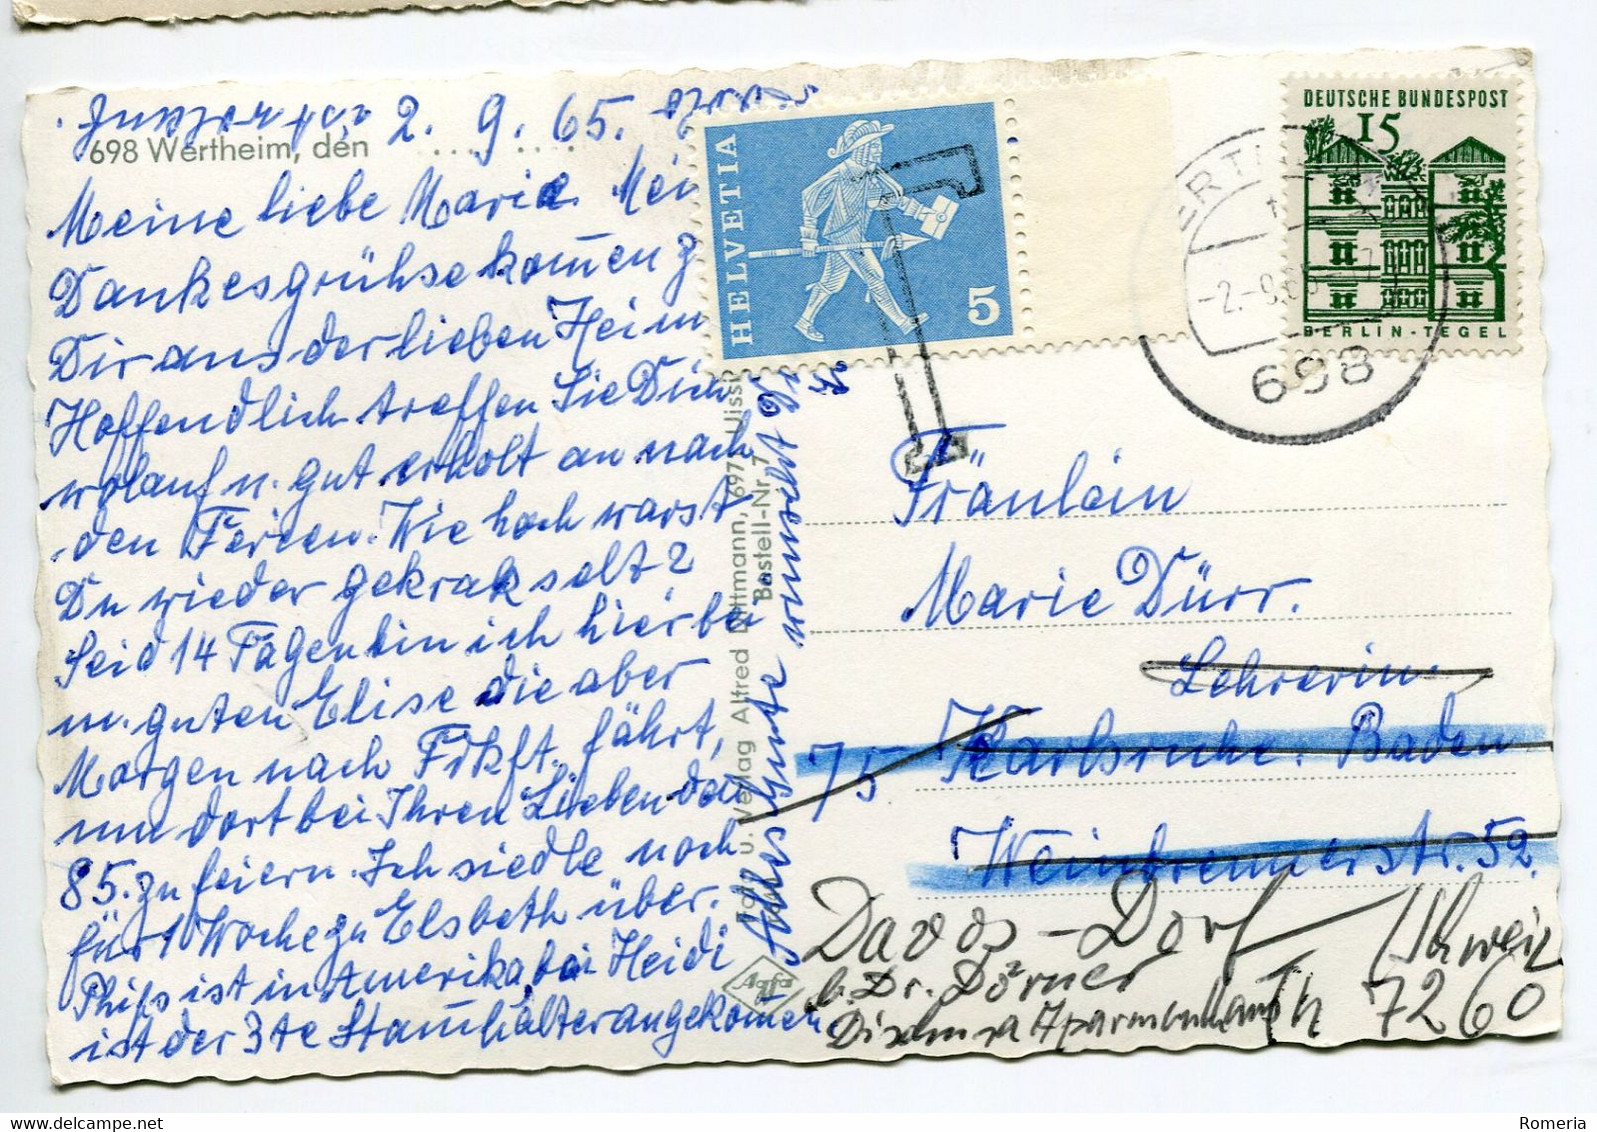 2. 9. 65.
698 Wertheim, den
Meine liebe Marie. Mei
Dankesgrühse kom̄en z
Dir aus der lieben Heim
Hoffendlich treffen Sie Dich
wolauf u. gut erholt an nach
den Ferien. Wie hoch warst
Du wieder gekrakselt?
Seid 14 Tagen bin ich hier bei
m. guten Elise die aber
Morgen nach Frkft. fährt,
um dort bei Ihren Lieben den
85. zu feiern. Ich siedle noch
für 1 Woche zu Elsbeth über.
Phips ist in Amerika, bei Heidi
ist der 3te Stam̄halter angekom̄en.
Alles Gute wünscht Dir
Foto u. Verlag Alfred Dittmann, 697 Uiss
Bestell-Nr. 7
Agfa
HELVETIA
5
T
DEUTSCHE BUNDESPOST
15
BERLIN-TEGEL
WERTHEIM
-2.-9.65
698
Fräulein
Marie Dürr.
Lehrerin
75 Karlsruhe. Baden
Weinbrennerstr. 52.
Davos-Dorf / Schweiz
b. Dr. Dörner
Dischma Apartmenthaus 7260
Romeria